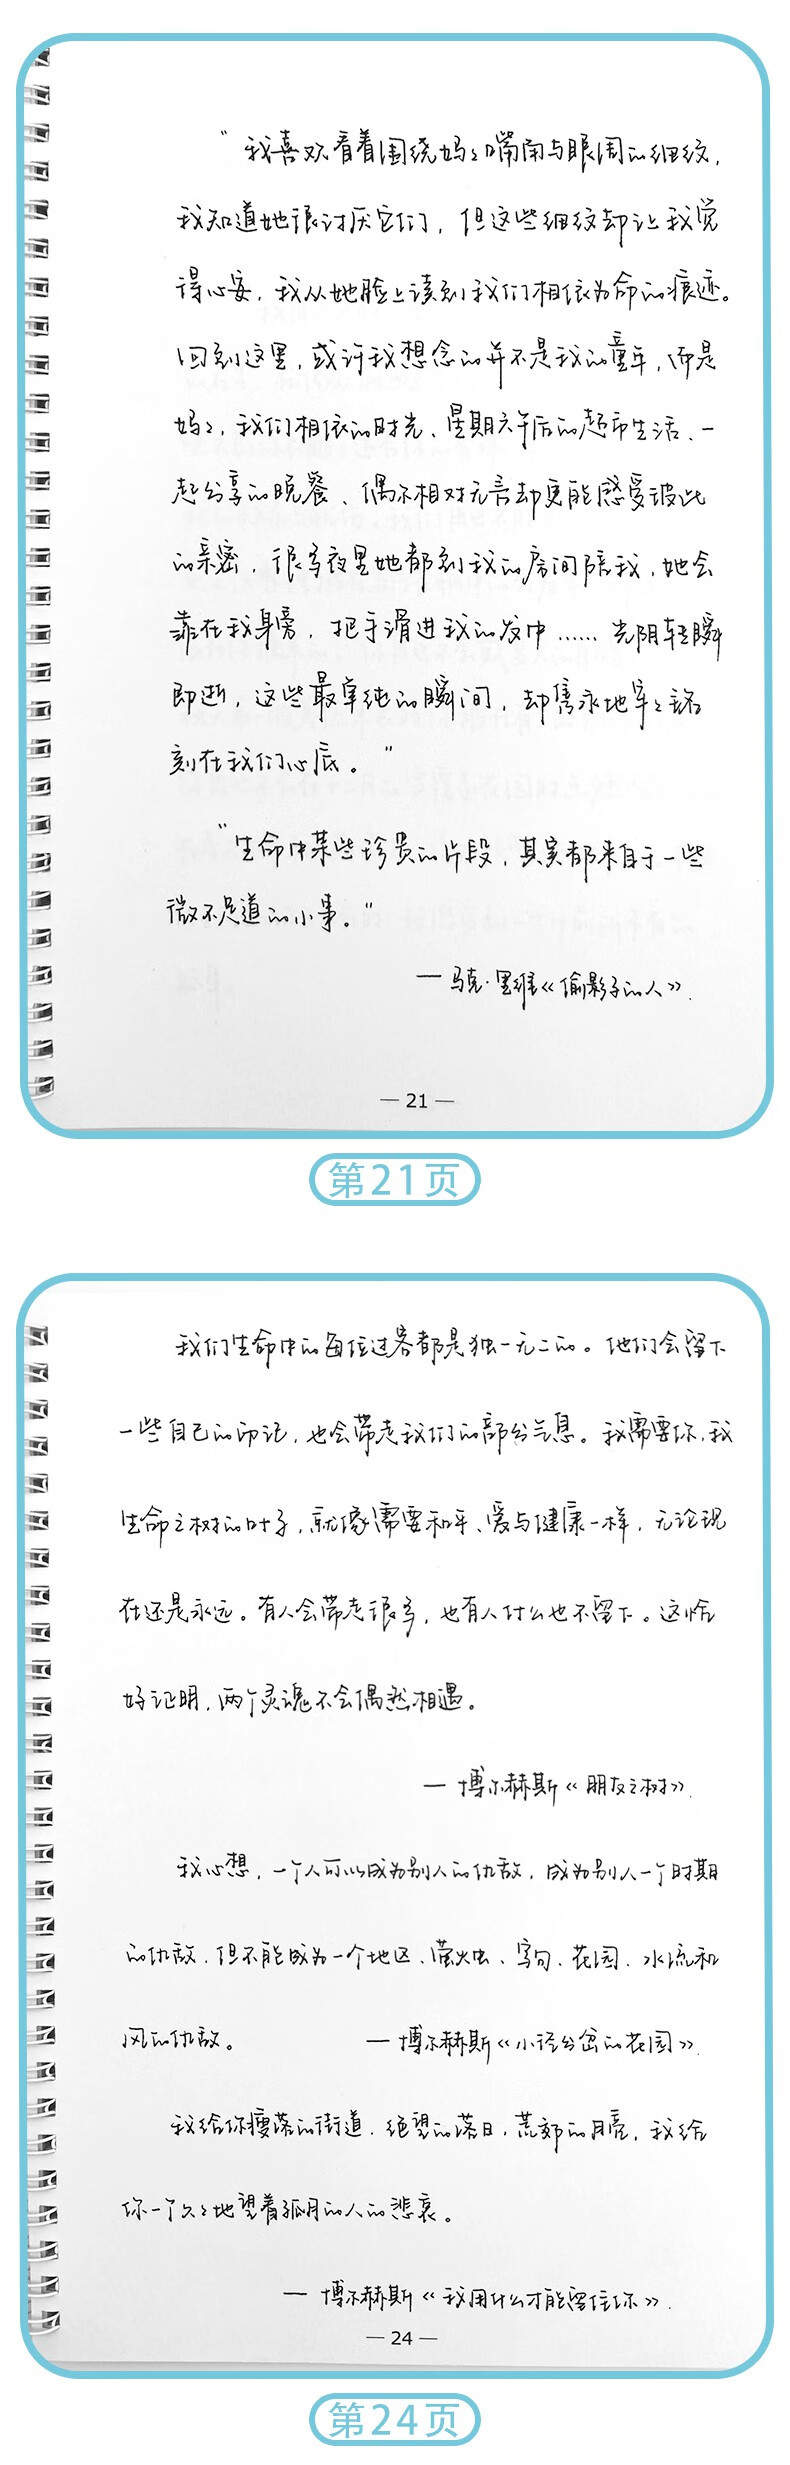 “我喜欢看着围绕妈々嘴角与眼周的细纹，
我知道她很讨厌它们，但这些细纹却让我觉
得心安，我从她脸上读到我们相依为命的痕迹。
回到这里，或许我想念的并不是我的童年，而是
妈々，我们相依的时光、星期六午后的超市生活、一
起分享的晚餐、偶尔相对无言却更能感受彼此
的亲密，很多夜里她都到我的房间陪我，她会
靠在我身旁，把手滑进我的发中……光阴转瞬
即逝，这些最单纯的瞬间，却隽永地牢々铭
刻在我们心底。”
“生命中某些珍贵的片段，其实都来自于一些
微不足道的小事。”
— 马克·里维《偷影子的人》.
— 21 —
第21页
我们生命中的每位过客都是独一无二的。他们会留下
一些自己的印记，也会带走我们的部分气息。我需要你，我
生命之树的叶子，就像需要和平、爱与健康一样，无论现
在还是永远。有人会带走很多，也有人什么也不留下。这恰
好证明，两个灵魂不会偶然相遇。
— 博尔赫斯《朋友之树》.
我心想，一个人可以成为别人的仇敌，成为别人一个时期
的仇敌，但不能成为一个地区、萤火虫、字句、花园、水流和
风的仇敌。 — 博尔赫斯《小径分岔的花园》.
我给你瘦落的街道、绝望的落日、荒郊的月亮，我给
你一个久々地望着孤月的人的悲哀。
— 博尔赫斯《我用什么才能留住你》.
— 24 —
第24页